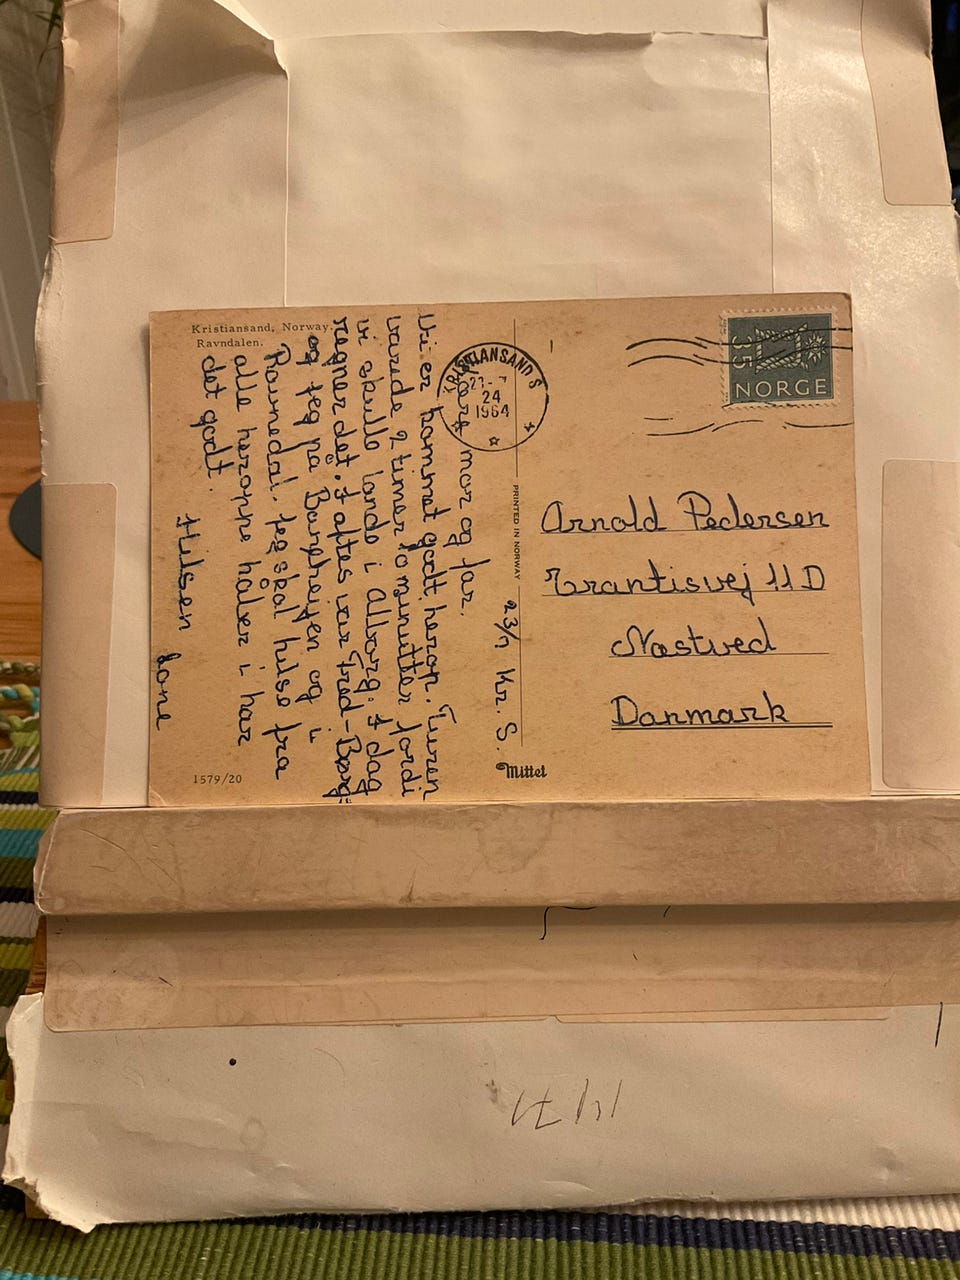 Kristiansand, Norway.
Ravndalen.
23/7 Kr. S.
Kære mor og far.
Vi er kommet godt herop. Turen
varede 2 timer 10 minutter fordi
vi skulle lande i Ålborg. I dag
regner det. I aftes var Fred-Børg
og jeg på Baneheyen og i
Ravnedal. Jeg skal hilse fra
alle heroppe håber i har
det godt.
Hilsen Lone
1579/20
PRINTED IN NORWAY
Mittet
KRISTIANSAND S
23-7
24
1964
35
NORGE
Arnold Pedersen
Erantisvej 11 D
Næstved
Danmark